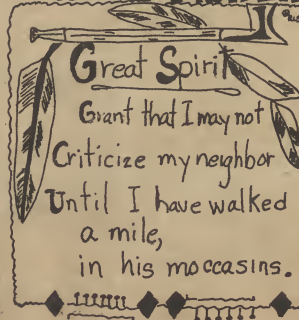 Great Spirit
Grant that I may not
Criticize my neighbor
Until I have walked
a mile,
in his moccasins.